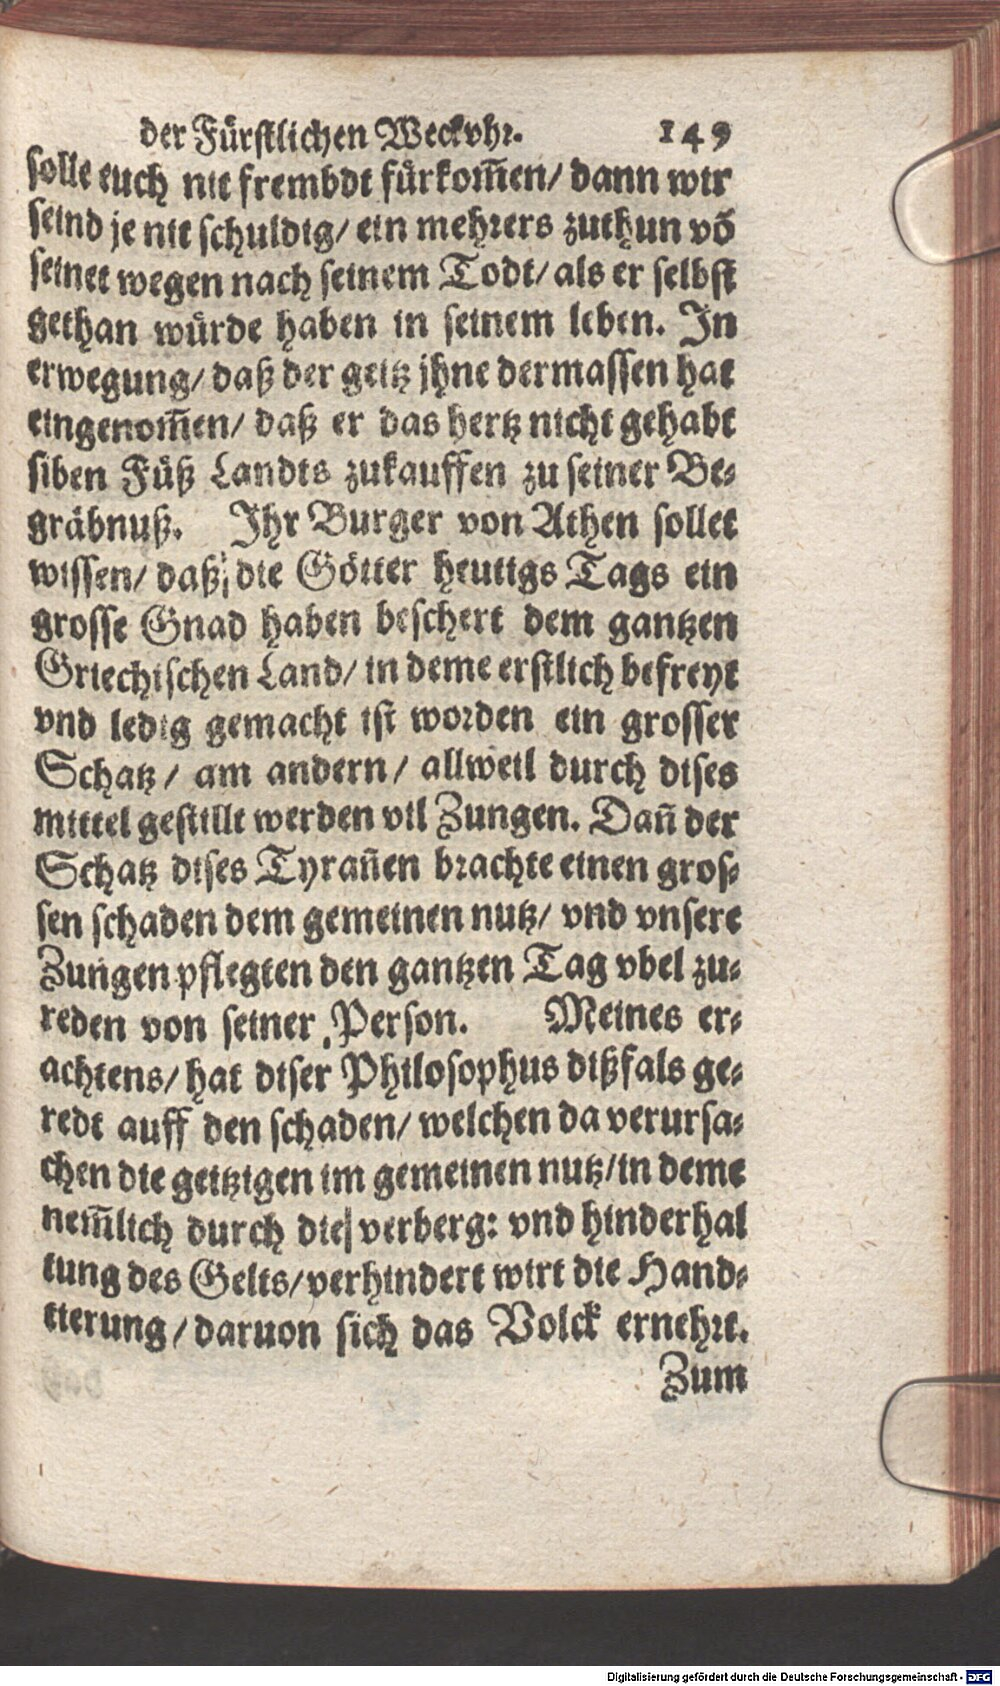 der Fürstlichen Weckvhr. 149
solle euch nit frembdt fürkom̃en/ dann wir
seind je nit schuldig/ ein mehrers zuthun võ
seinet wegen nach seinem Todt/ als er selbst
gethan würde haben in seinem leben. In
erwegung/ daß der geitz jhne dermassen hat
eingenom̃en/ daß er das hertz nicht gehabt
siben Füß Landts zukauffen zu seiner Be-
gräbnuß. Ihr Burger von Athen sollet
wissen/ daß die Götter heutigs Tags ein
grosse Gnad haben beschert dem gantzen
Griechischen Land/ in deme erstlich befreyt
vnd ledig gemacht ist worden ein grosser
Schatz/ am andern/ allweil durch dises
mittel gestillt werden vil Zungen. Dañ der
Schatz dises Tyrañen brachte einen gros-
sen schaden dem gemeinen nutz/ vnd vnsere
Zungen pflegten den gantzen Tag vbel zu-
reden von seiner Person. Meines er-
achtens/ hat diser Philosophus dißfals ge-
redt auff den schaden/ welchen da verursa-
chen die geitzigen im gemeinen nutz/ in deme
nem̃lich durch die verberg: vnd hinderhal
tung des Gelts/ verhindert wirt die Hand-
tierung/ daruon sich das Volck ernehrt.
Zum
Digitalisierung gefördert durch die Deutsche Forschungsgemeinschaft - DFG